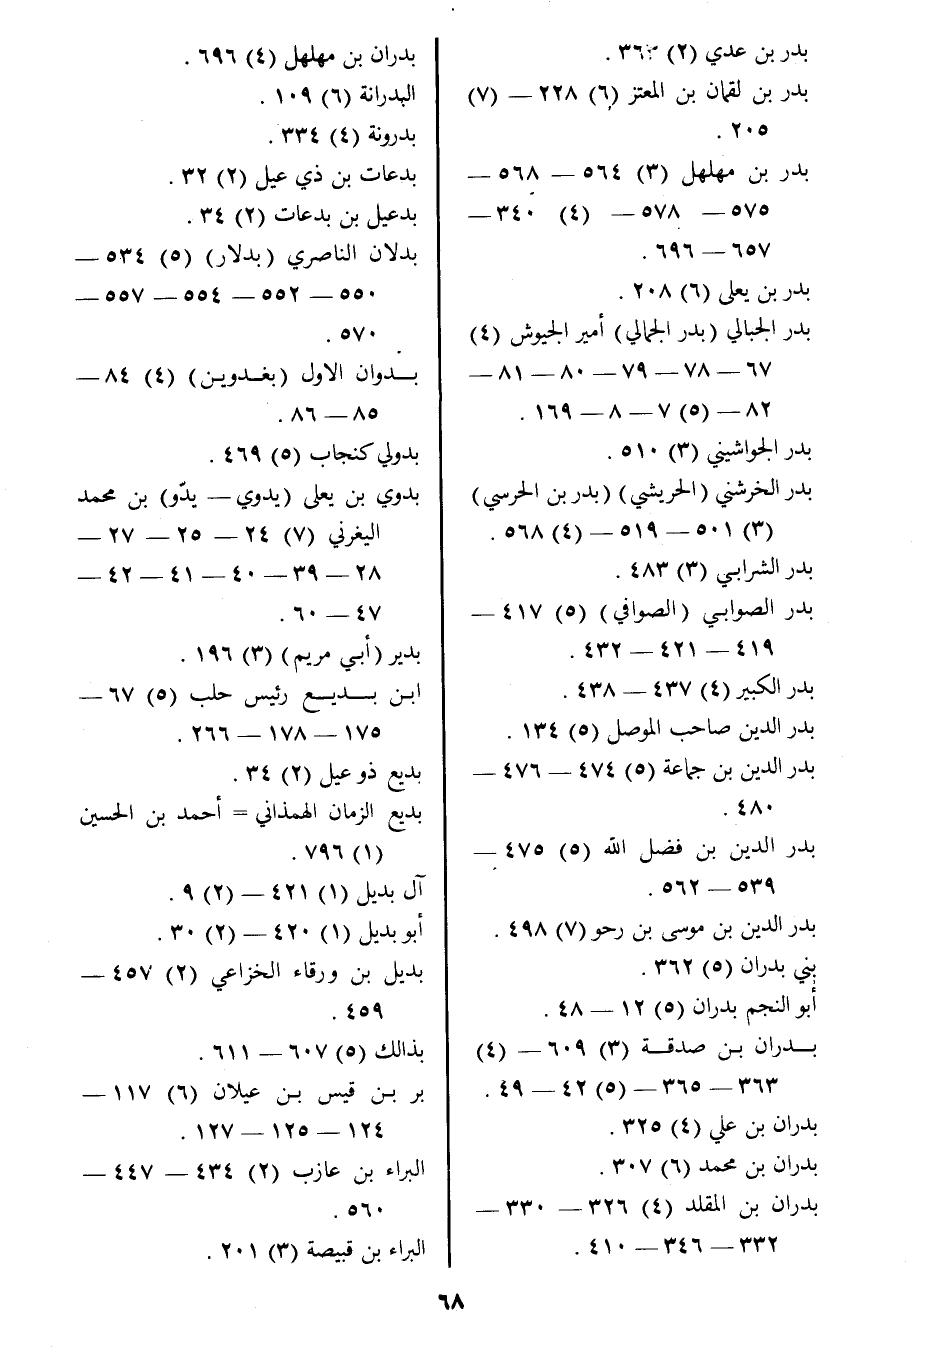 بدر بن عدي (٢) ٣٦٠ .
بدر بن لقمان بن المعتز (٦) ٢٢٨ — (٧)
٢٠٥ .
بدر بن مهلهل (٣) ٥٦٤ — ٥٦٨ —
٥٧٥ — ٥٧٨ — (٤) ٣٤٠ —
٦٥٧ — ٦٩٦ .
بدر بن يعلى (٦) ٢٠٨ .
بدر الجبالي (بدر الجمالي) أمير الجيوش (٤)
٦٧ — ٧٨ — ٧٩ — ٨٠ — ٨١ —
٨٢ — (٥) ٧ — ٨ — ١٦٩ .
بدر الجواشيني (٣) ٥١٠ .
بدر الخرشني (الحريشي) (بدر بن الحرسي)
(٣) ٥٠١ — ٥١٩ — (٤) ٥٦٨ .
بدر الشرابي (٣) ٤٨٣ .
بدر الصوابي (الصوافي) (٥) ٤١٧ —
٤١٩ — ٤٢١ — ٤٣٢ .
بدر الكبير (٤) ٤٣٧ — ٤٣٨ .
بدر الدين صاحب الموصل (٥) ١٣٤ .
بدر الدين بن جماعة (٥) ٤٧٤ — ٤٧٦ —
٤٨٠ .
بدر الدين بن فضل الله (٥) ٤٧٥ —
٥٣٩ — ٥٦٢ .
بدر الدين بن موسى بن رحو (٧) ٤٩٨ .
بني بدران (٥) ٣٦٢ .
أبو النجم بدران (٥) ١٢ — ٤٨ .
بـدران بـن صدقـة (٣) ٦٠٩ — (٤)
٣٦٣ — ٣٦٥ — (٥) ٤٢ — ٤٩ .
بدران بن علي (٤) ٣٢٥ .
بدران بن محمد (٦) ٣٠٧ .
بدران بن المقلد (٤) ٣٢٦ — ٣٣٠ —
٣٣٢ — ٣٤٦ — ٤١٠ .
بدران بن مهلهل (٤) ٦٩٦ .
البدرانة (٦) ١٠٩ .
بدرونة (٤) ٣٣٤ .
بدعات بن ذي عيل (٢) ٣٢ .
بدعيل بن بدعات (٢) ٣٤ .
بدلان الناصري (بدلار) (٥) ٥٣٤ —
٥٥٠ — ٥٥٢ — ٥٥٤ — ٥٥٧ —
٥٧٠ .
بـدوان الاول (بغـدويـن) (٤) ٨٤ —
٨٥ — ٨٦ .
بدولي كنجاب (٥) ٤٦٩ .
بدوي بن يعلى (يدوي — يدّو) بن محمد
اليغرني (٧) ٢٤ — ٢٥ — ٢٧ —
٢٨ — ٣٩ — ٤٠ — ٤١ — ٤٢ —
٤٧ — ٦٠ .
بدير (أبي مريم) (٣) ١٩٦ .
ابـن بـديـع رئيس حلب (٥) ٦٧ —
١٧٥ — ١٧٨ — ٢٦٦ .
بديع ذو عيل (٢) ٣٤ .
بديع الزمان الهمذاني = أحمد بن الحسين
(١) ٧٩٦ .
آل بديل (١) ٤٢١ — (٢) ٩ .
أبو بديل (١) ٤٢٠ — (٢) ٣٠ .
بديل بن ورقاء الخزاعي (٢) ٤٥٧ —
٤٥٩ .
بذالك (٥) ٦٠٧ — ٦١١ .
بر بـن قيس بـن عيلان (٦) ١١٧ —
١٢٤ — ١٢٥ — ١٢٧ .
البراء بن عازب (٢) ٤٣٤ — ٤٤٧ —
٥٦٠ .
البراء بن قبيصة (٣) ٢٠١ .
٦٨